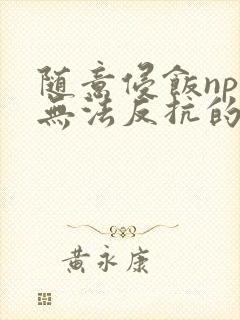 随意侵飯np
無法反抗的
黃永康